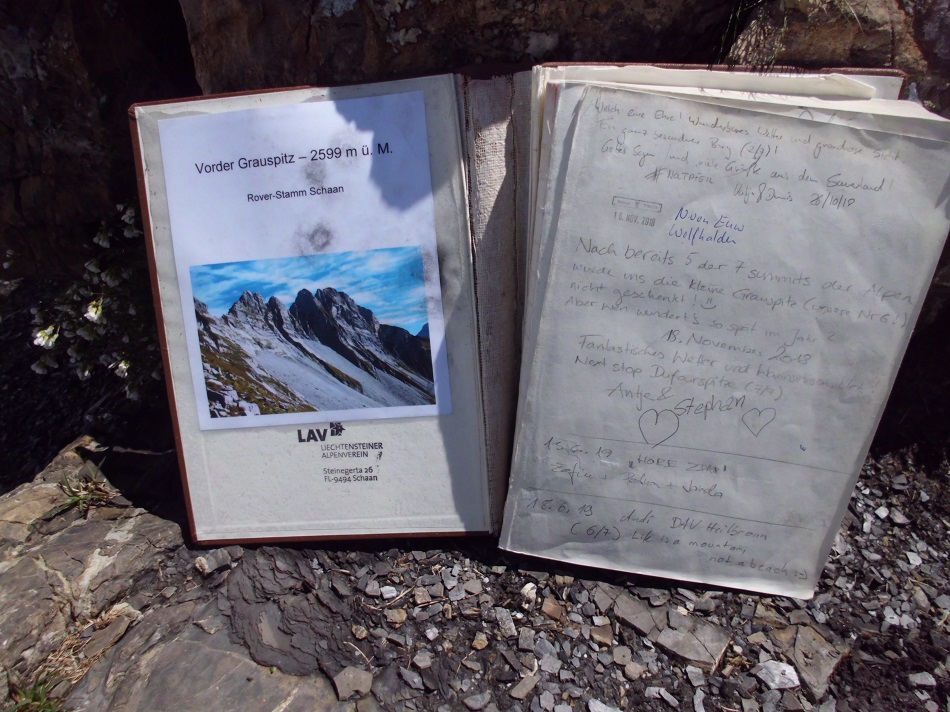 Vorder Grauspitz – 2599 m ü. M.
Rover-Stamm Schaan
LAV
LIECHTENSTEINER
ALPENVEREIN
Steinegerta 26
FL-9494 Schaan
Gleich eine Ehre! Wunderbares Wetter und grandiose Sicht
Ein ganz besonderer Berg (2/7)!
Guten und viele Grüße aus dem Sauerland!
26/10/18
18. NOV. 2018
Wolfhalden
Nach bereits 5 der 7 summits der Alpen
wurde uns die kleine Grauspitz (unsere Nr 6!)
nicht geschenkt!
Aber wen wundert's so spät im Jahr
18. November 2018
Fantastisches Wetter und
Next stop Dufourspitze (7/7)
Antje &
Stephan
19
15.6.19 DAV-Heilbronn
(6/7) Life is a mountain
not a beach :-)